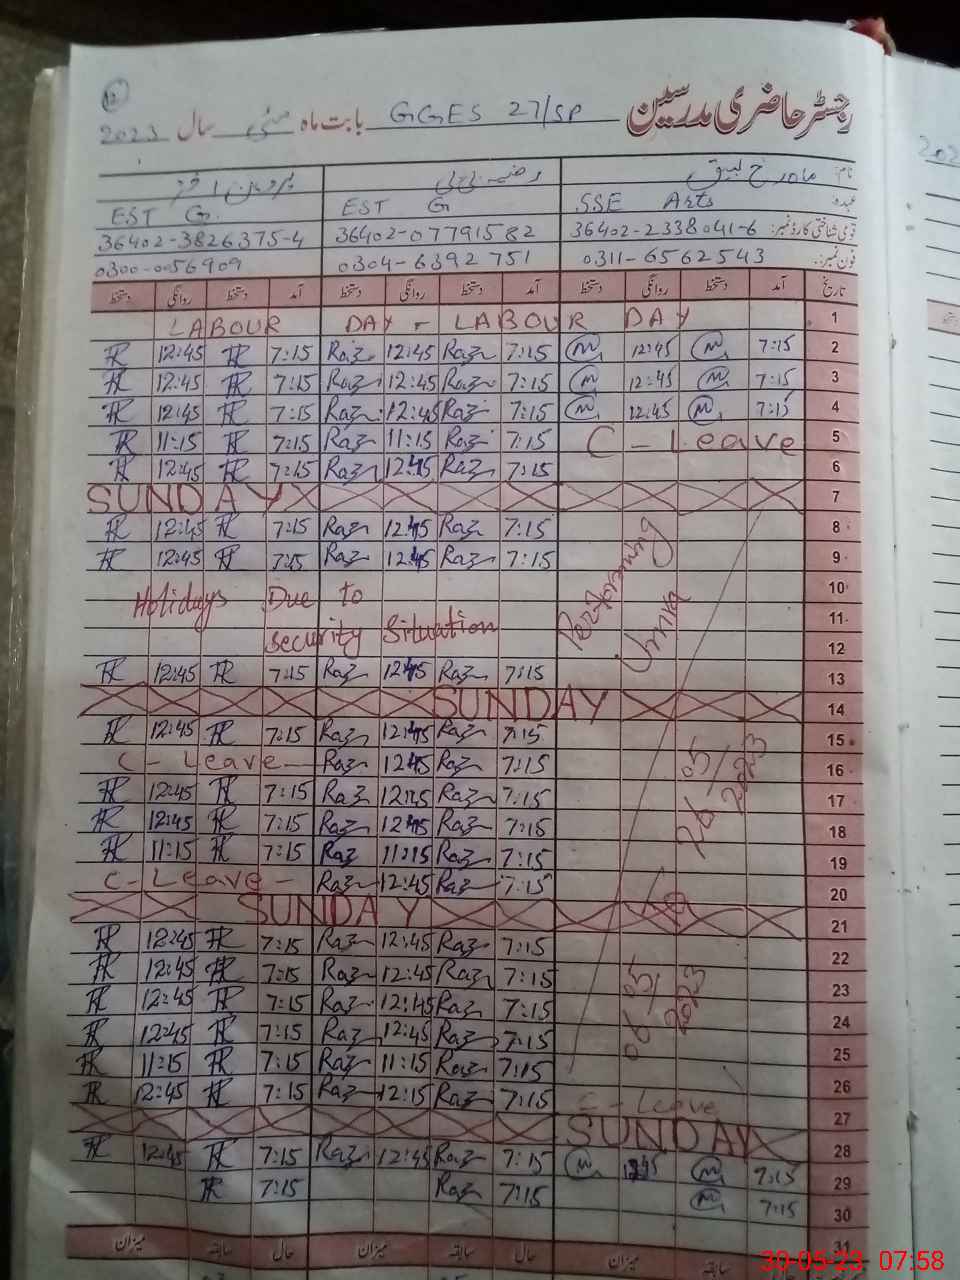 12
رجسٹر حاضری مدرسین GGES 27/SP بابت ماہ مئی سال 2023
نام:
عہدہ: SSE Arts EST G EST G.
قومی شناختی کارڈ نمبر: 36402-2338041-6 36402-07791582 36402-3826375-4
فون نمبر: 0311-6562543 0304-6392751 0300-0056909
تاریخ آمد دستخط روانگی دستخط آمد دستخط روانگی دستخط آمد دستخط روانگی دستخط
LABOUR DAY - LABOUR DAY 1
12:45 7:15 Raz 12:45 Raz 7:15 12:45 7:15 2
12:45 7:15 Raz 12:45 Raz 7:15 12:45 7:15 3
12:45 7:15 Raz 12:45 Raz 7:15 12:45 7:15 4
11:15 7:15 Raz 11:15 Raz 7:15 C - Leave 5
12:45 7:15 Raz 12:45 Raz 7:15 6
SUNDAY 7
12:45 7:15 Raz 12:45 Raz 7:15 8
12:45 7:15 Raz 12:45 Raz 7:15 9
10
Holidays Due to 11
security Situation 12
Performing Umra
12:45 7:15 Raz 12:45 Raz 7:15 13
SUNDAY 14
12:45 7:15 Raz 12:45 Raz 7:15 15
C - Leave - Raz 12:45 Raz 7:15 16
12:45 7:15 Raz 12:45 Raz 7:15 17
12:45 7:15 Raz 12:45 Raz 7:15 18
11:15 7:15 Raz 11:15 Raz 7:15 19
C - Leave - Raz 12:45 Raz 7:15 20
26 05/2023
To
06 05/2023
SUNDAY 21
12:45 7:15 Raz 12:45 Raz 7:15 22
12:45 7:15 Raz 12:45 Raz 7:15 23
12:45 7:15 Raz 12:45 Raz 7:15 24
12:45 7:15 Raz 12:45 Raz 7:15 25
11:15 7:15 Raz 11:15 Raz 7:15 26
12:45 7:15 Raz 12:15 Raz 7:15 C - Leave 27
SUNDAY 28
12:45 7:15 Raz 12:45 Raz 7:15 12:45 7:15 29
7:15 Raz 7:15 7:15 30
31
حال سابقہ میزان حال سابقہ میزان حال سابقہ میزان
30-05-23 07:58